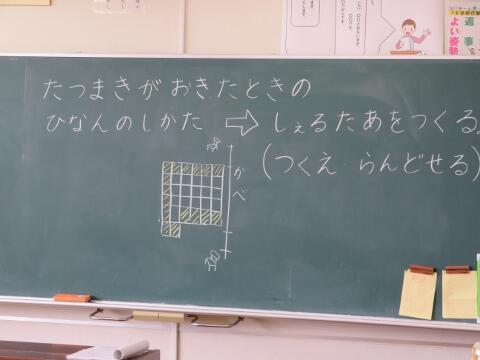 たつまきがおきたときの
ひなんのしかた ⇨ しぇるたあをつくる。
(つくえ・らんどせる)
かべ
返事
よい姿勢